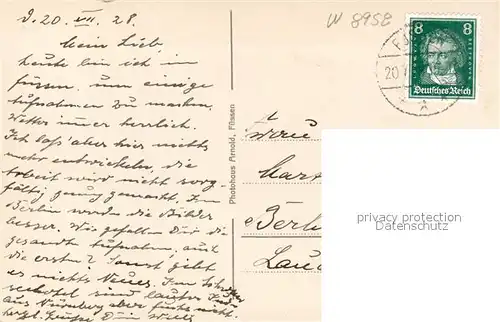 d. 20. VII. 28.
Mein Lieb,
heute bin ich in
Füssen, um einige
Aufnahmen zu machen.
Wetter immer herrlich.
Ich lass' aber hier nichts
mehr entwickeln, die
Arbeit wird nicht sorg-
fältig genug gemacht. In
Berlin werden die Bilder
besser. Wie gefallen Dir die
gesandt Aufnahm, auch
die ersten? Sonst gibt
es nichts Neues. Im
sind lauter
aus Nürnberg aber
herzl. Grüsse Dein Willi
Photohaus Arnold, Füssen
W 8958
8 8
Deutsches Reich
20.7
Frau
Berl
privacy protection
Datenschutz